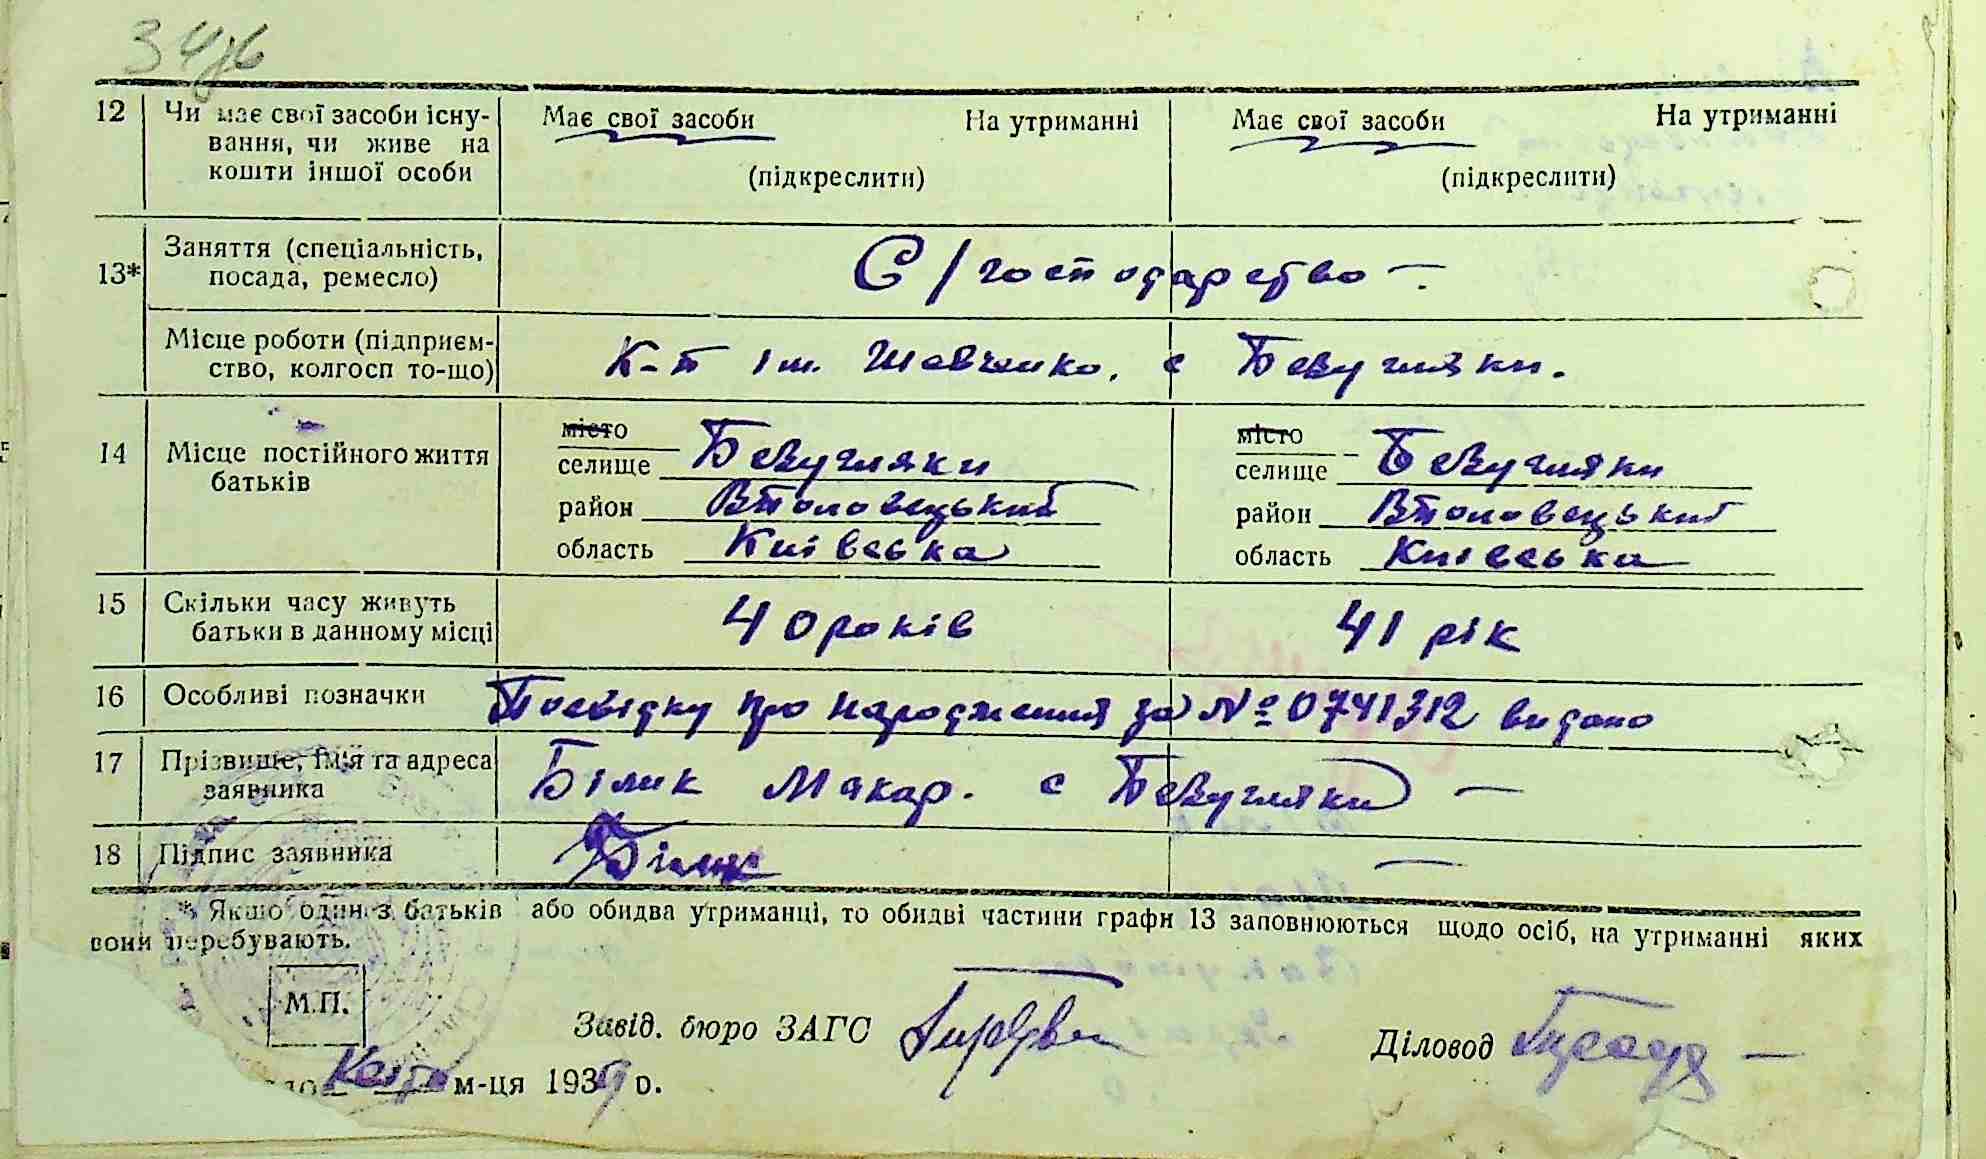 34
12 Чи має свої засоби існу- Має свої засоби На утриманні Має свої засоби На утриманні
вання, чи живе на
кошти іншої особи (підкреслити) (підкреслити)
13* Заняття (спеціальність, С/господарство –
посада, ремесло)
Місце роботи (підприєм- К-п ім. Шевченко. с Безугляки.
ство, колгосп то-що)
14 Місце постійного життя місто місто
батьків селище Безугляки селище Безугляки
район Втоловецький район Втоловецький
область Київська область Київська
15 Скільки часу живуть 40 років 41 рік
батьки в данному місці
16 Особливі позначки Посвідку про народження за № 0741312 видано
17 Прізвище, ім'я та адреса Білик Макар. с Безугляки –
заявника
18 Підпис заявника Білик –
* Якшо один з батьків або обидва утриманці, то обидві частини графи 13 заповнюються щодо осіб, на утриманні яких
вони перебувають.
М.П. Завід. бюро ЗАГС Діловод
м-ця 1939 р.